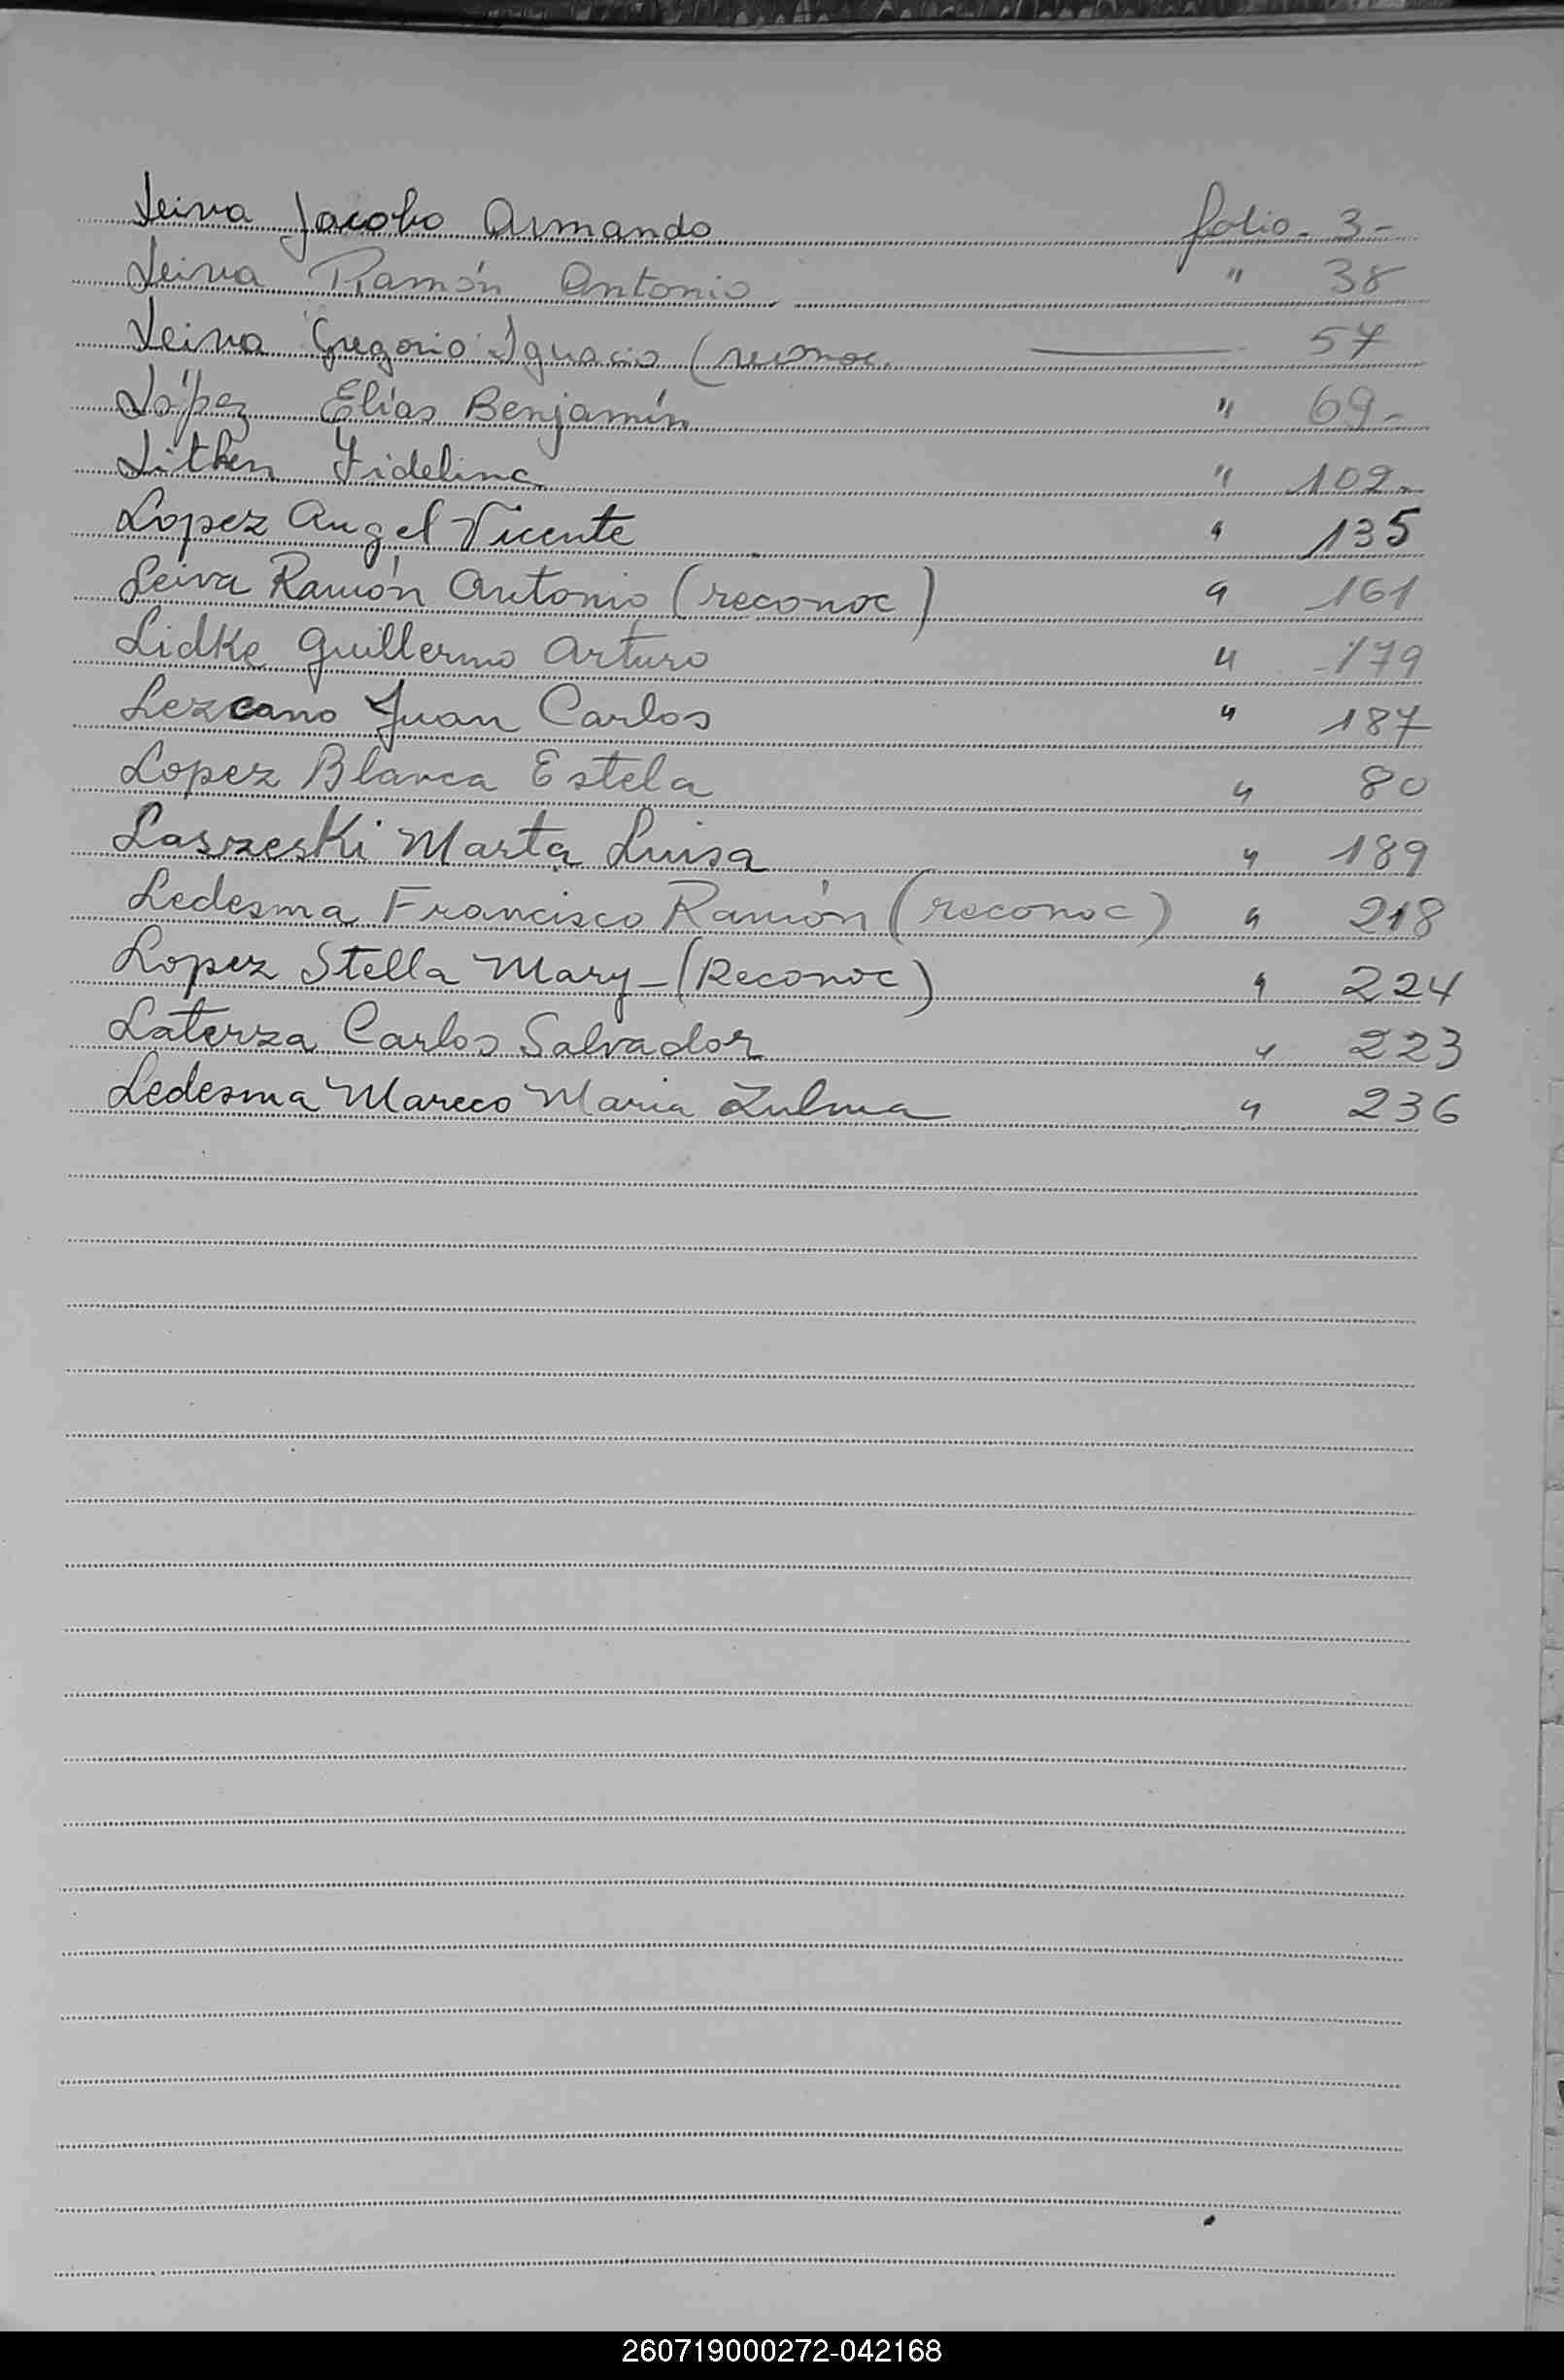 Leiva Jacobo Armando folio - 3 -
Leiva Ramón Antonio " 38
Leiva Gregorio Ignacio (reconoc. — 57
López Elías Benjamín " 69 -
Lithen Fidelina " 109 -
Lopez Angel Vicente " 135
Leiva Ramón Antonio (reconoc) " 161
Lidke Guillermo Arturo " 179
Lezcano Juan Carlos " 187
Lopez Blanca Estela " 80
Laszeski Marta Luisa " 189
Ledesma Francisco Ramón (reconoc) " 218
Lopez Stella Mary - (Reconoc) " 224
Laterza Carlos Salvador " 223
Ledesma Mareco Maria Zulma " 236
260719000272-042168